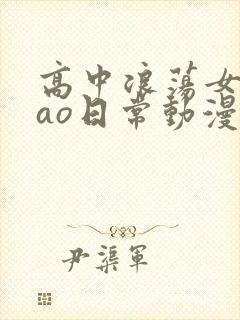 高中浪荡女
ao日常動漫
尹渠軍